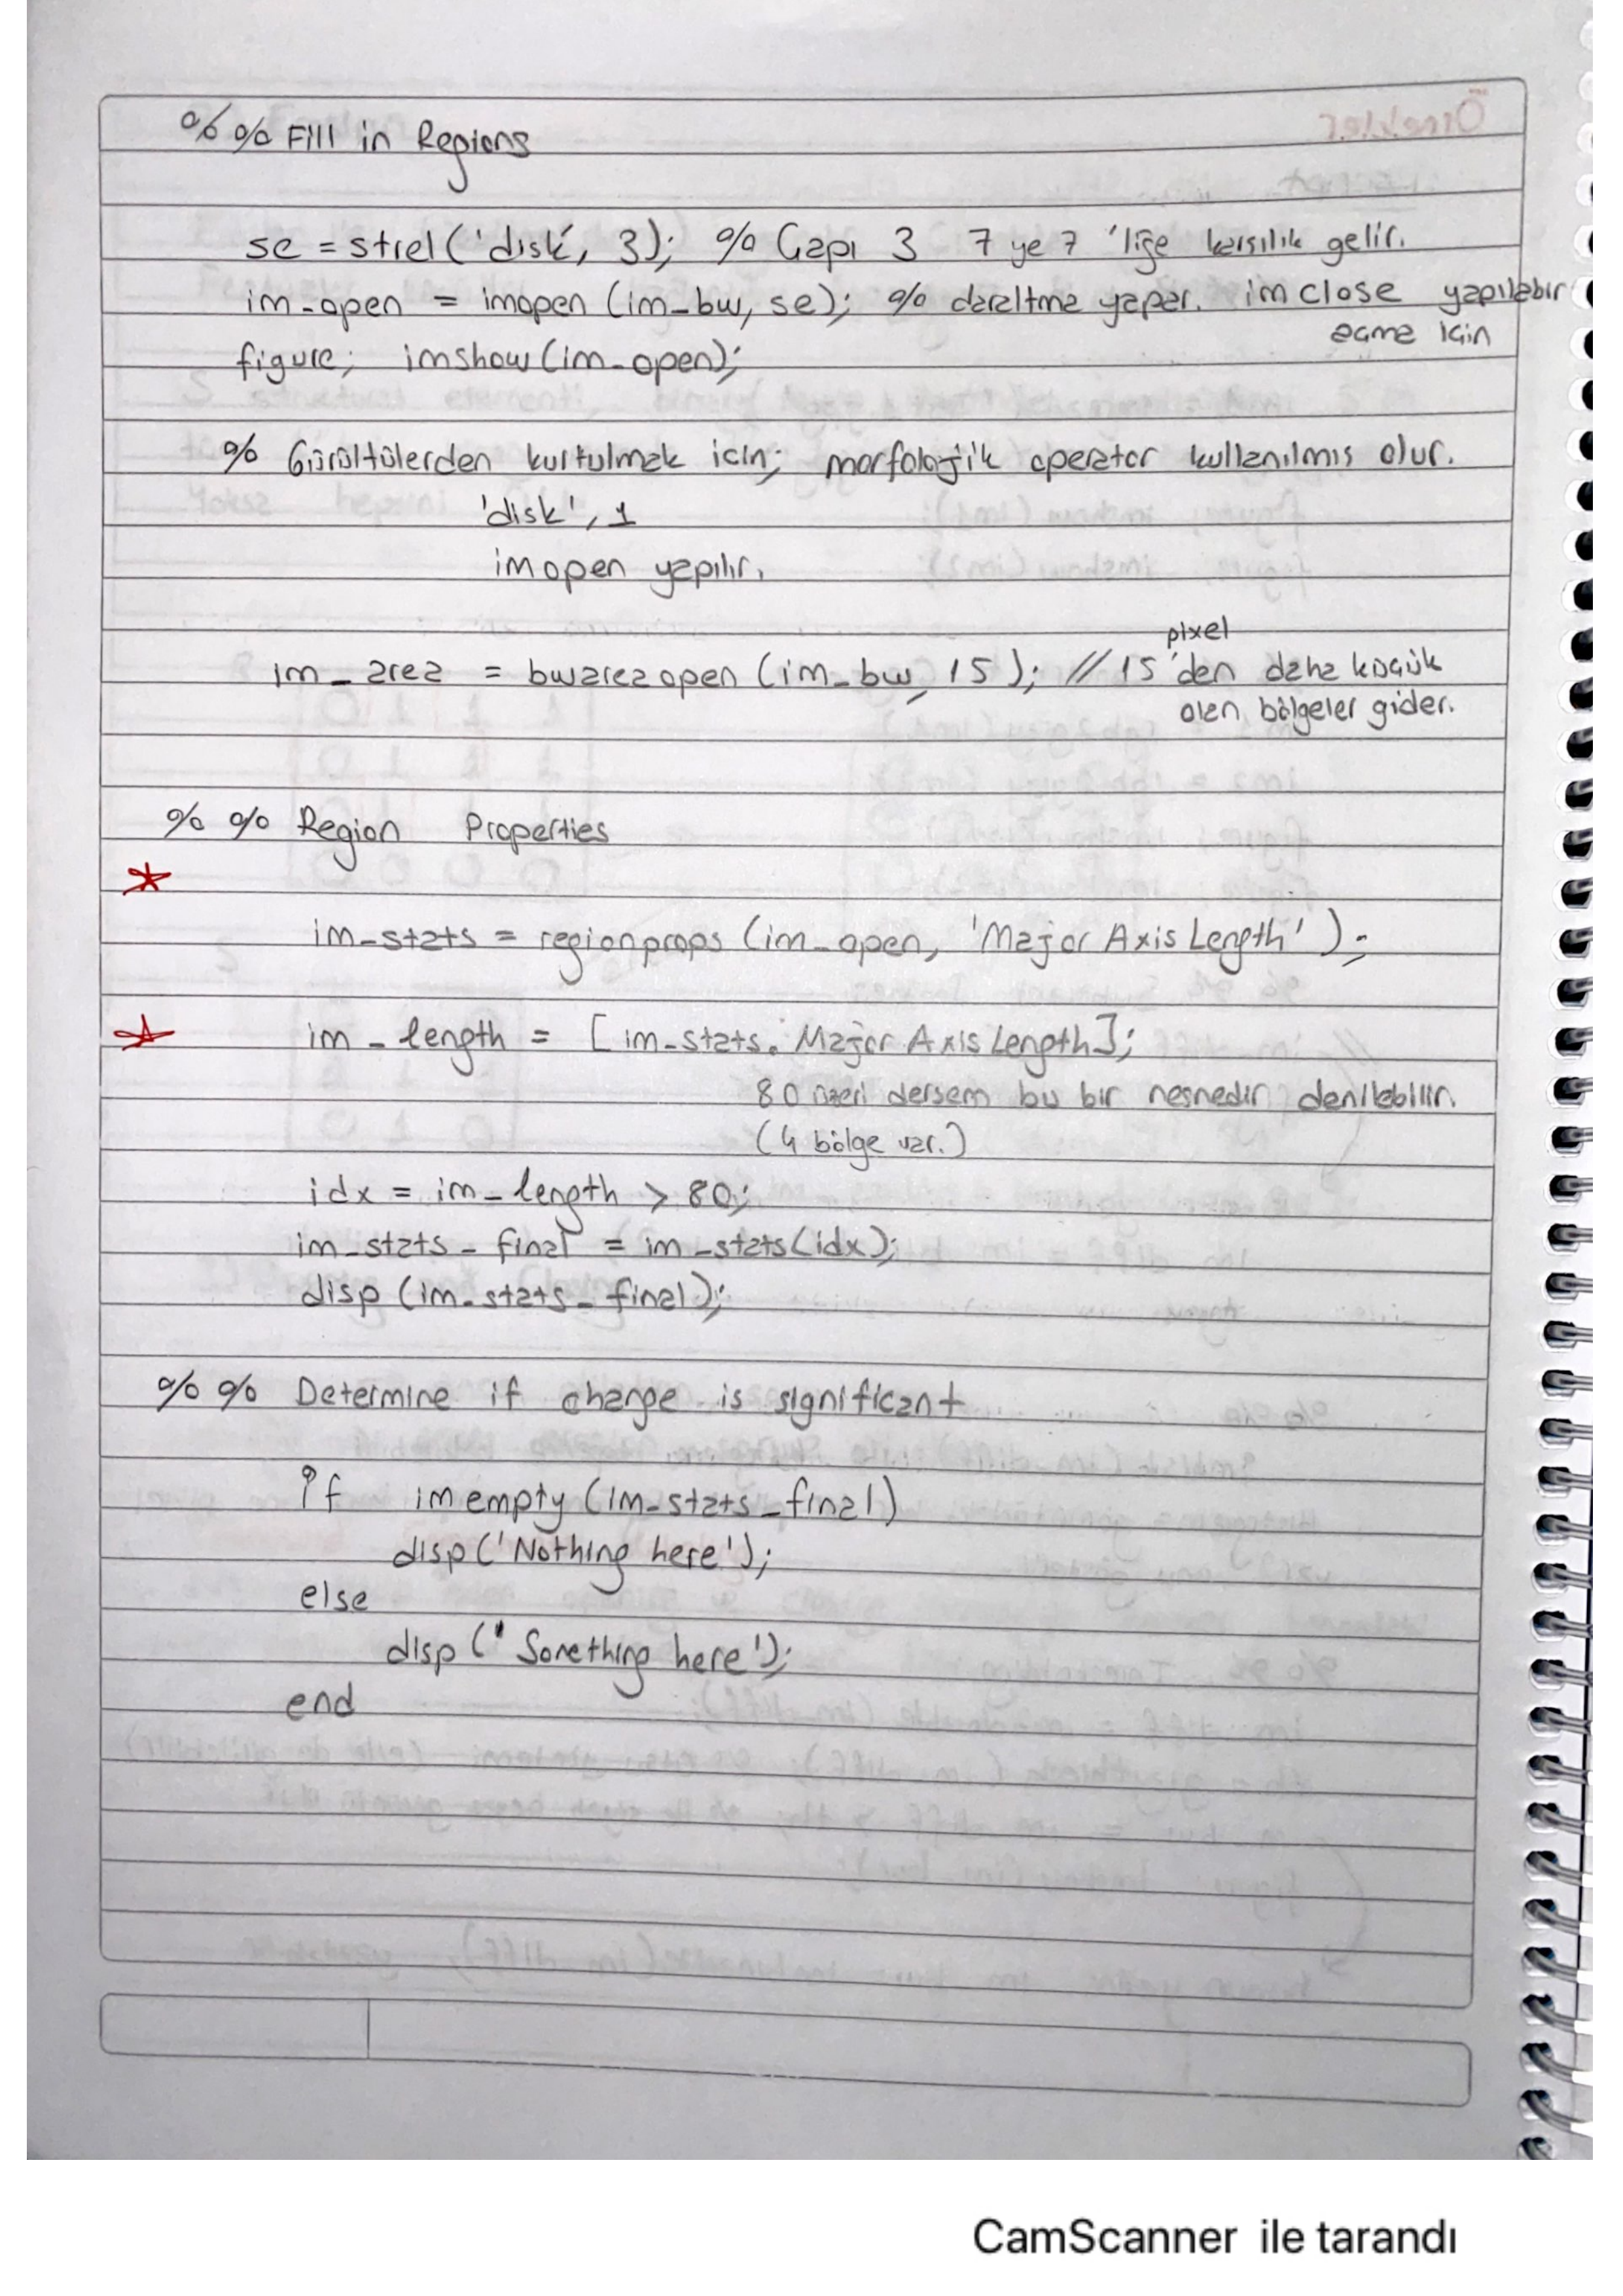 %% Fill in Regions
se = strel('disk', 3); % Çapı 3 7 ye 7 'liğe karsılık gelir.
im_open = imopen (im_bw, se); % daraltma yapar. imclose yapılabır
acma için
figure; imshow(im_open);
% Gürültülerden kurtulmak icin; morfolojik operator kullanılmıs olur.
'disk', 1
imopen yapılır.
pixel
im_area = bwareaopen (im_bw, 15); // 15 'den daha küçük
olan bölgeler gider.
%% Region Properties
im_stats = regionprops (im_open, 'Major Axis Length');
im_length = [im_stats. Major Axis Length];
80 üzeri dersem bu bir nesnedir denilebilir.
(4 bölge var.)
idx = im_length > 80;
im_stats_final = im_stats(idx);
disp (im_stats_final);
%% Determine if change is significant
if imempty (im_stats_final)
disp('Nothing here');
else
disp ('Something here');
end
CamScanner ile tarandı